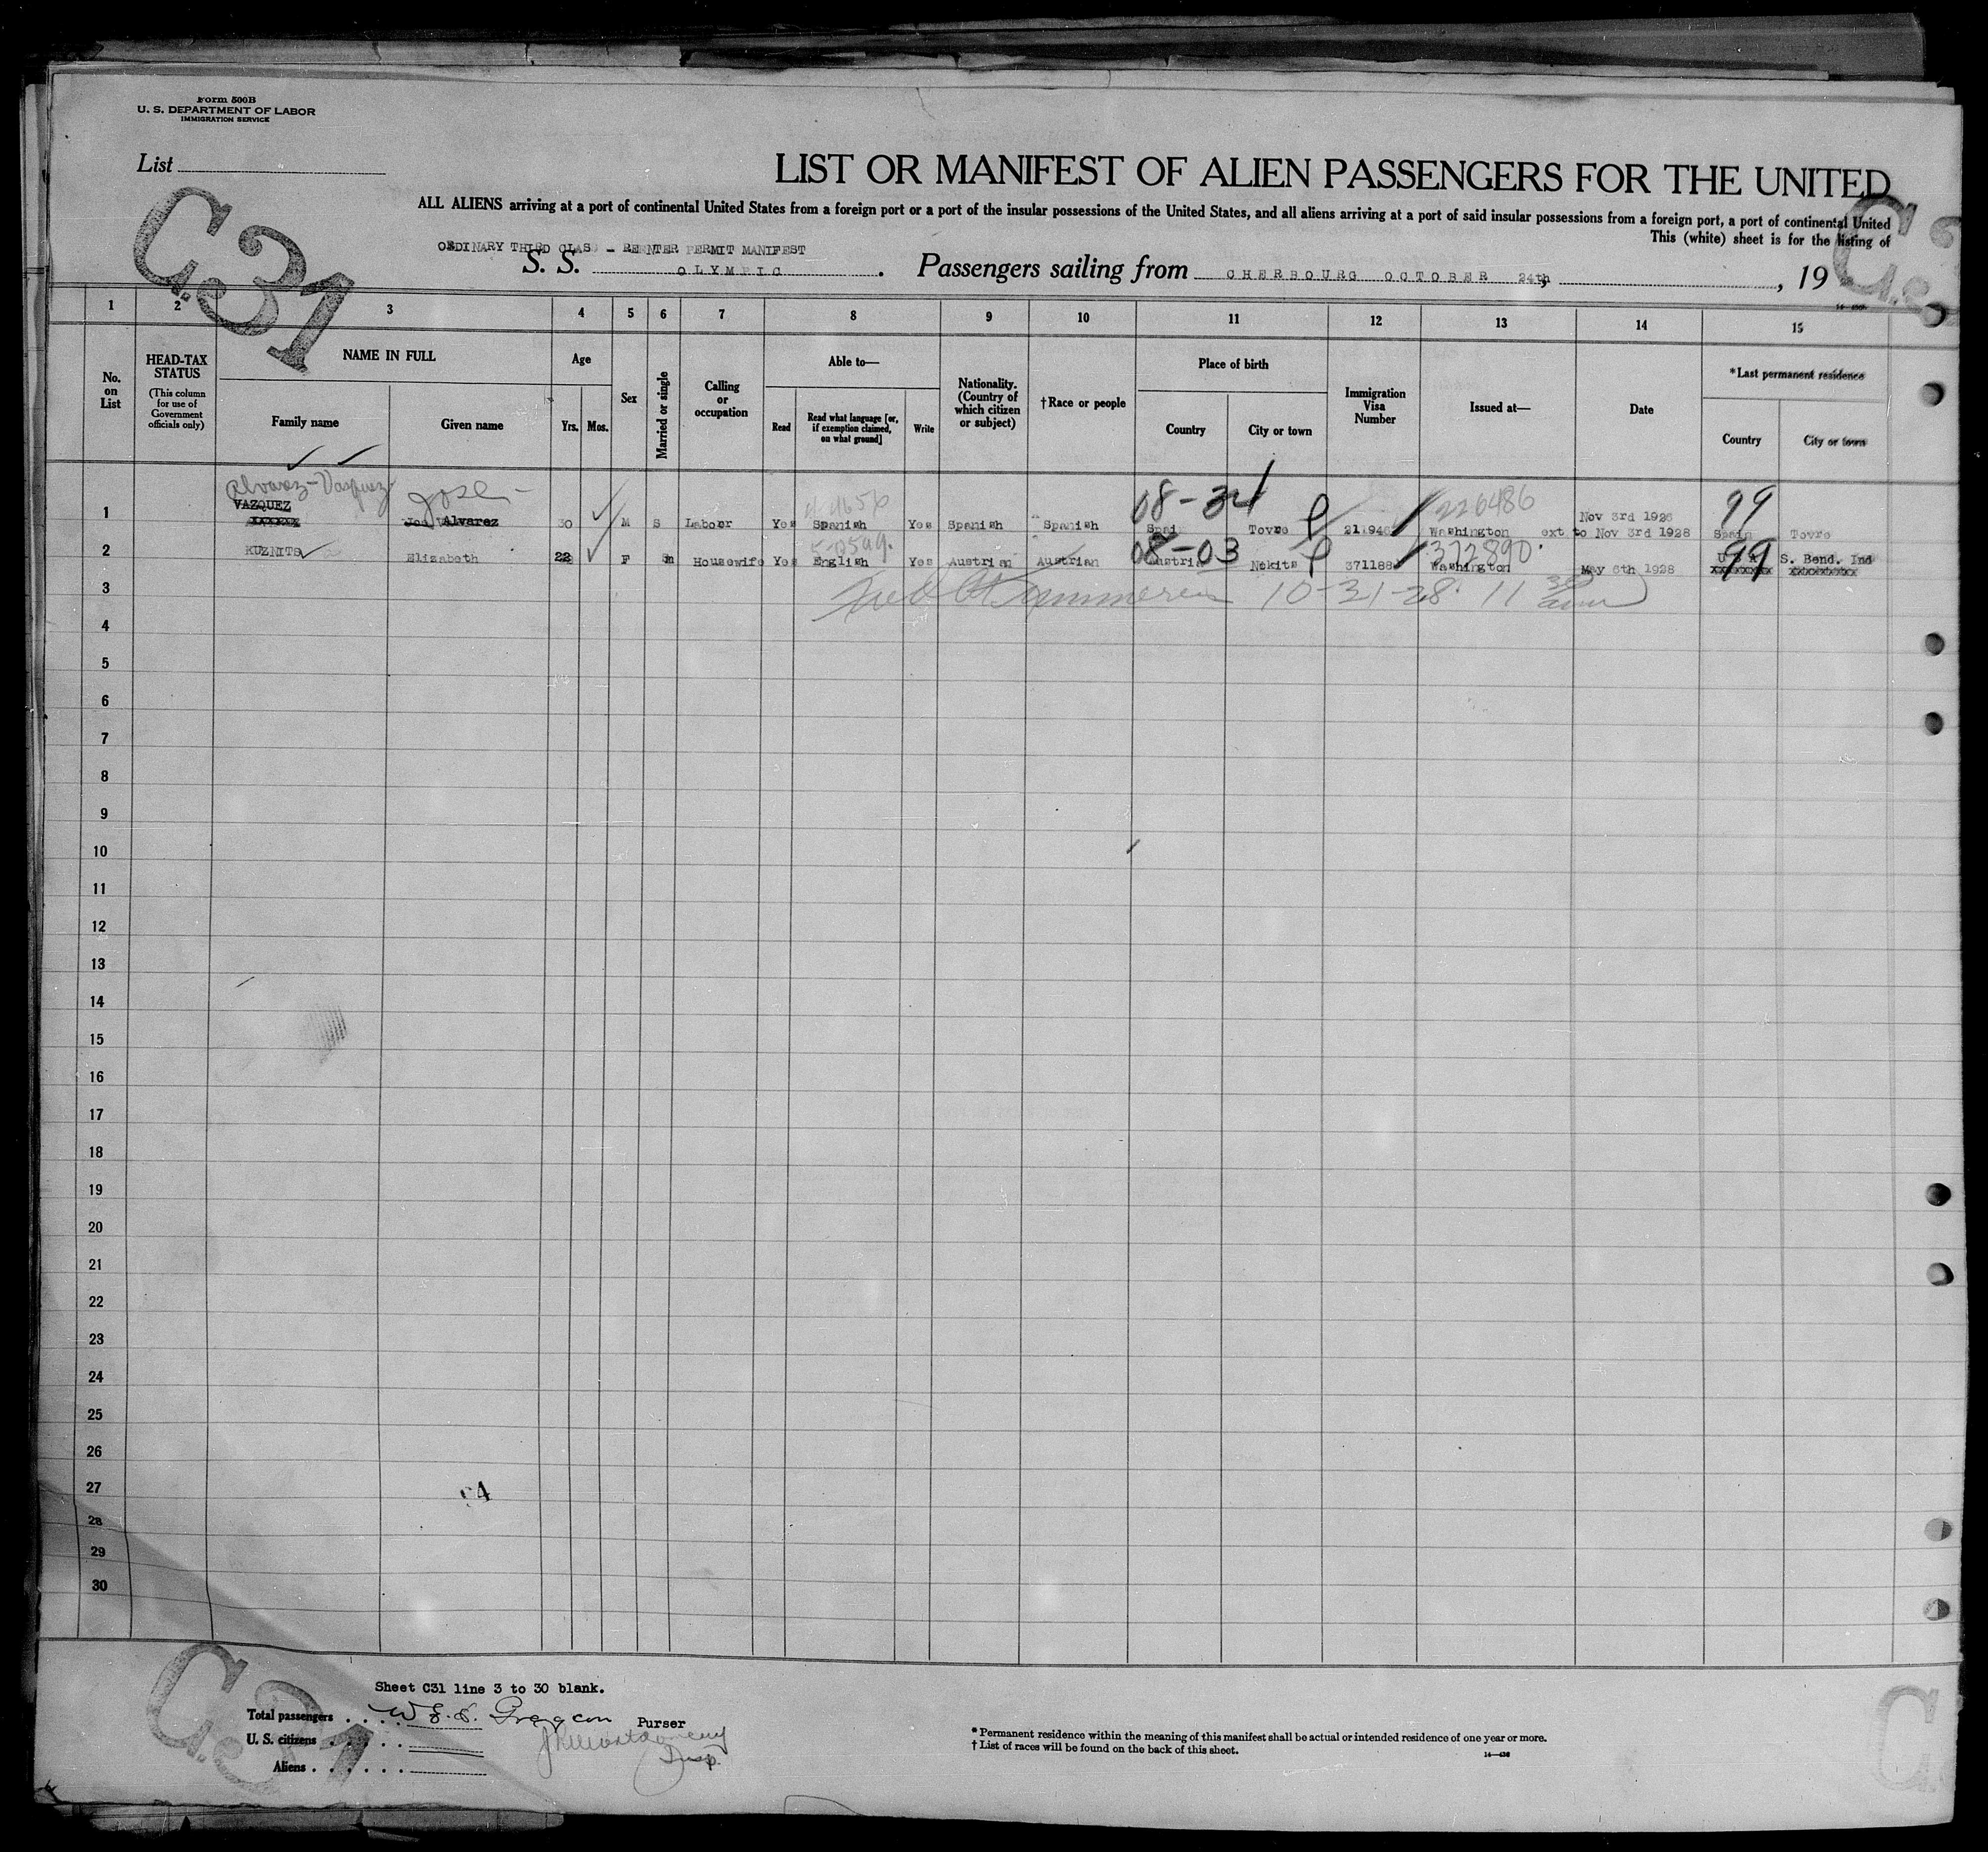 Form 500B
U. S. DEPARTMENT OF LABOR
IMMIGRATION SERVICE
List
C.31
LIST OR MANIFEST OF ALIEN PASSENGERS FOR THE UNITED
ALL ALIENS arriving at a port of continental United States from a foreign port or a port of the insular possessions of the United States, and all aliens arriving at a port of said insular possessions from a foreign port, a port of continental United
This (white) sheet is for the listing of
ORDINARY THIRD CLAS - REENTER PERMIT MANIFEST
S. S. OLYMPIC. Passengers sailing from CHERBOURG OCTOBER 24th, , 19
1 2 3 4 5 6 7 8 9 10 11 12 13 14 15
No. on List
HEAD-TAX STATUS
(This column for use of Government officials only)
NAME IN FULL
Family name
Given name
Age
Yrs.
Mos.
Sex
Married or single
Calling or occupation
Able to—
Read
Read what language [or, if exemption claimed, on what ground]
Write
Nationality. (Country of which citizen or subject)
†Race or people
Place of birth
Country
City or town
Immigration Visa Number
Issued at—
Date
*Last permanent residence
Country
City or town
Alvarez-Vasquez Jose 08-34 226486 99
VAZQUEZ Nov 3rd 1926
1 XXXXXX Alvarez 30 M S Laborer Yes Spanish Yes Spanish Spanish Spain Tovre Washington ext to Nov 3rd 1928 Spain Tovre
5-0599. 08-03 372890. 99
2 KUZNITS Elizabeth 22 F m Housewife Yes English Yes Austrian Austrian Austria Nekits 371188 Washington May 6th 1928 S. Bend. Ind
XXXXXXXX XXXXXXXXX
3 10-31-28. 11 30 am
4
5
6
7
8
9
10
11
12
13
14
15
16
17
18
19
20
21
22
23
24
25
26
27
28
29
30
C.31
Sheet C31 line 3 to 30 blank.
Total passengers . . . . Purser
U. S. citizens . . . . . .
Insp.
Aliens . . . . . .
* Permanent residence within the meaning of this manifest shall be actual or intended residence of one year or more.
† List of races will be found on the back of this sheet.